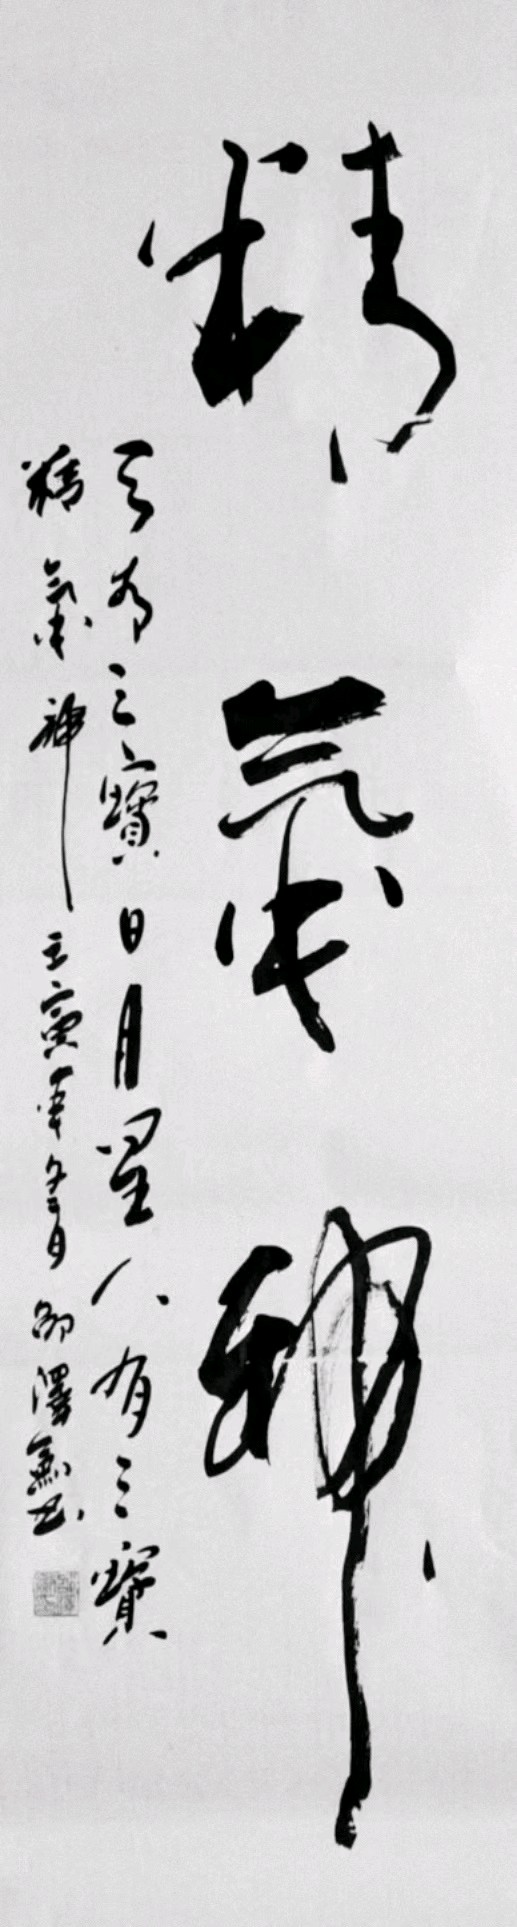 精氣神
天有三寶日月星人有三寶
精氣神壬寅年冬月邵澤書